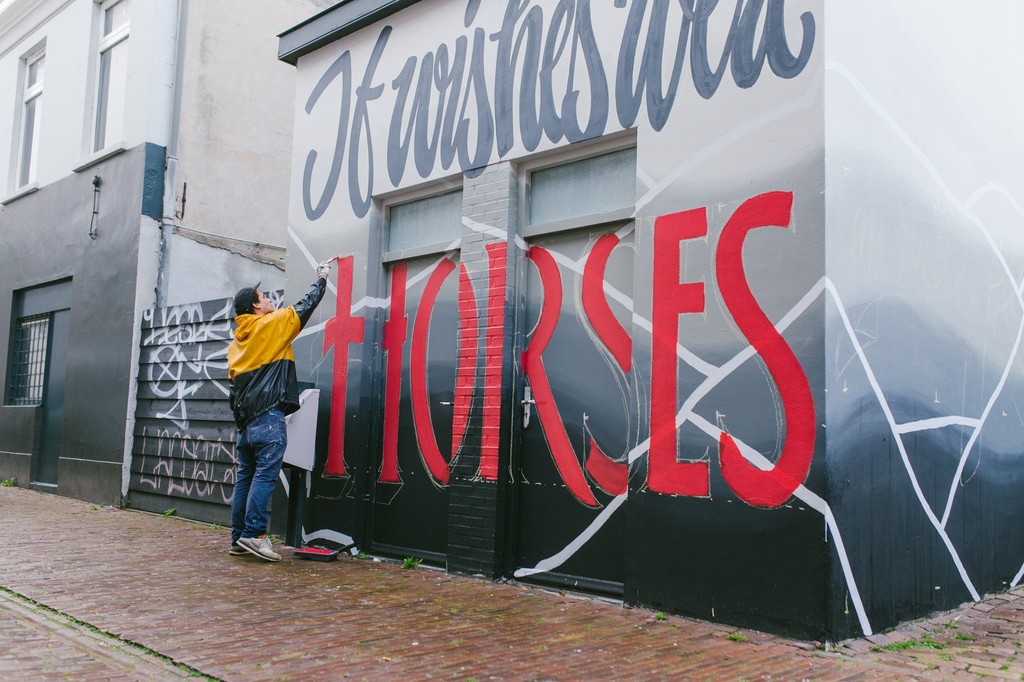 If wishes were
HORSES